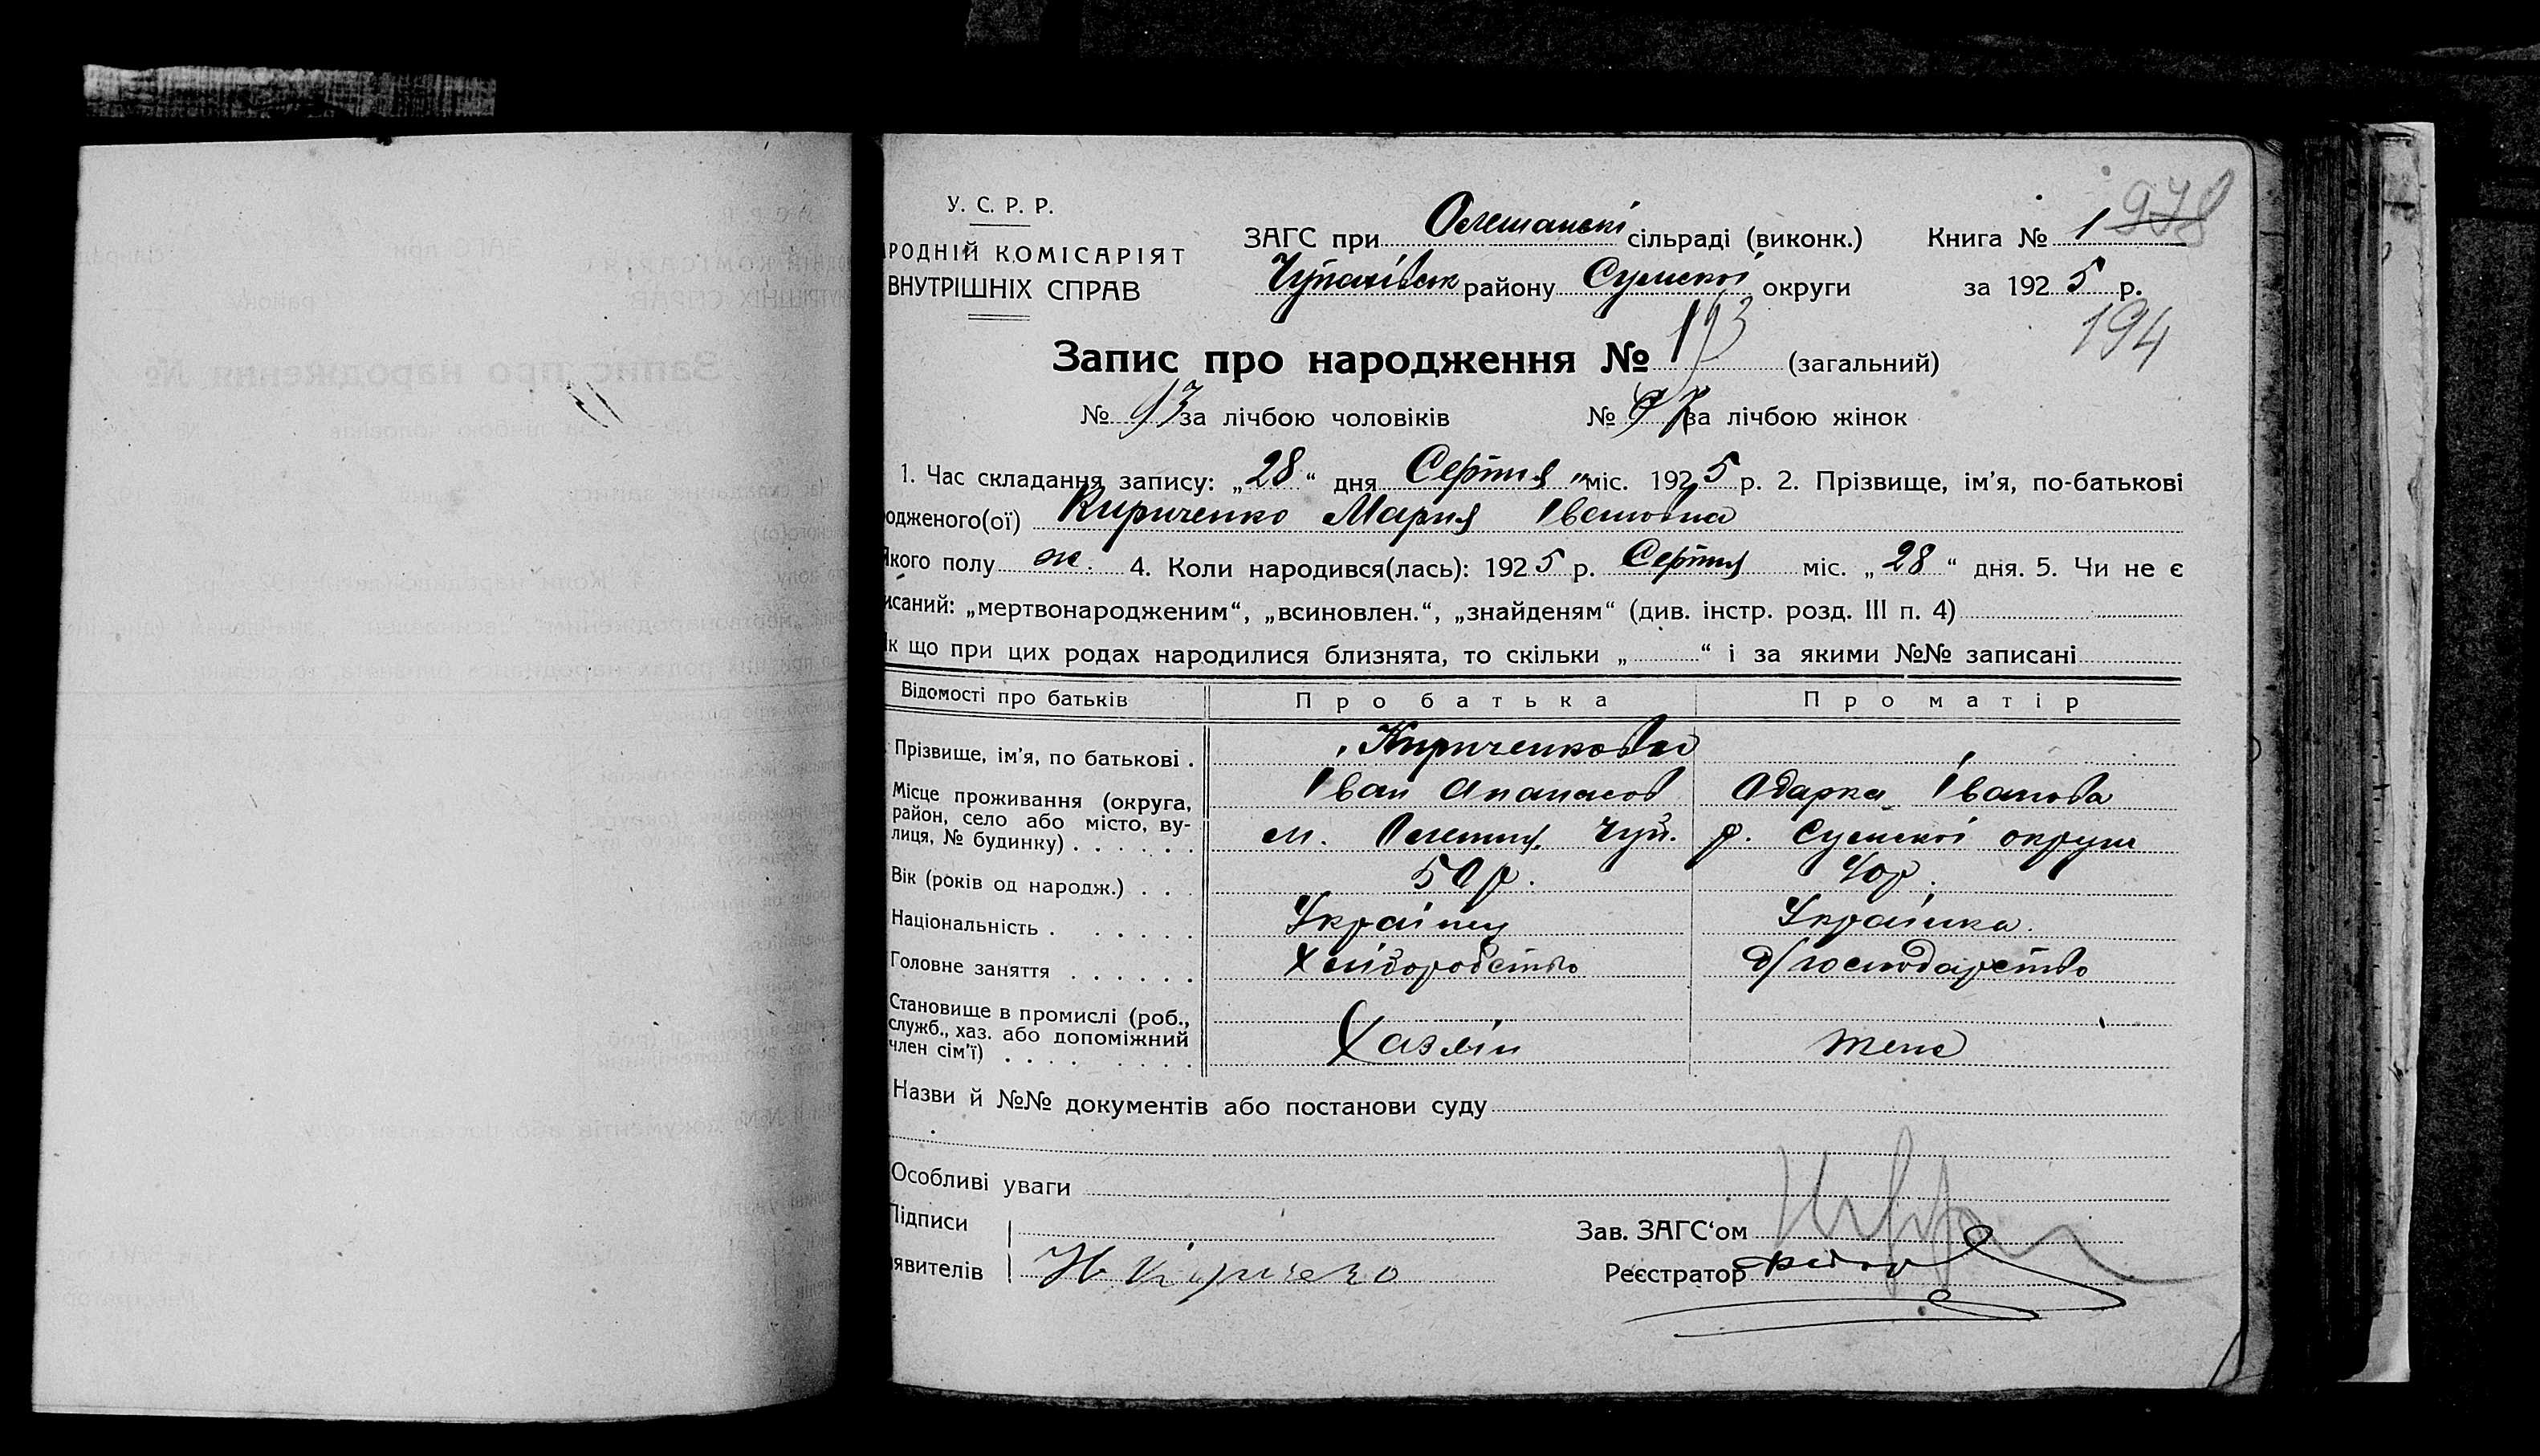 У. С. Р. Р.
РОДНІЙ КОМІСАРІЯТ
ВНУТРІШНІХ СПРАВ
ЗАГС при Олешанські сільраді (виконк.) Книга № 1
Чупахівськ району Сумської округи за 1925 р.
194
Запис про народження № 193 (загальний)
№ 93 за лічбою чоловіків № за лічбою жінок
1. Час складання запису: „28“ дня Серпня міс. 1925 р. 2. Прізвище, ім’я, по-батькові
одженого(ої) Кириченко Мария Івановна
Якого полу ж. 4. Коли народився(лась): 1925 р. Серпня міс. „28“ дня. 5. Чи не є
исаний: „мертвонародженим“, „всиновлен.“, „знайденям“ (див. інстр. розд. III п. 4)
Як що при цих родах народилися близнята, то скільки „ “ і за якими №№ записані
Відомості про батьків Про батька Про матір
Прізвище, ім’я, по батькові . Кириченкови
Іван Апанасов Одарка Іванова
Місце проживання (округа, район, село або місто, вулиця, № будинку) м. Олешня Чуп. р. Сумської округи
Вік (років од народж.) 50 р. 40 р.
Національність Українец Українка.
Головне заняття Хліборобство д/господарство
Становище в промислі (роб., служб., хаз. або допоміжний член сім’ї) Хазяїн жена
Назви й №№ документів або постанови суду
Особливі уваги
Підписи
явителів
Зав. ЗАГС‘ом
Реєстратор